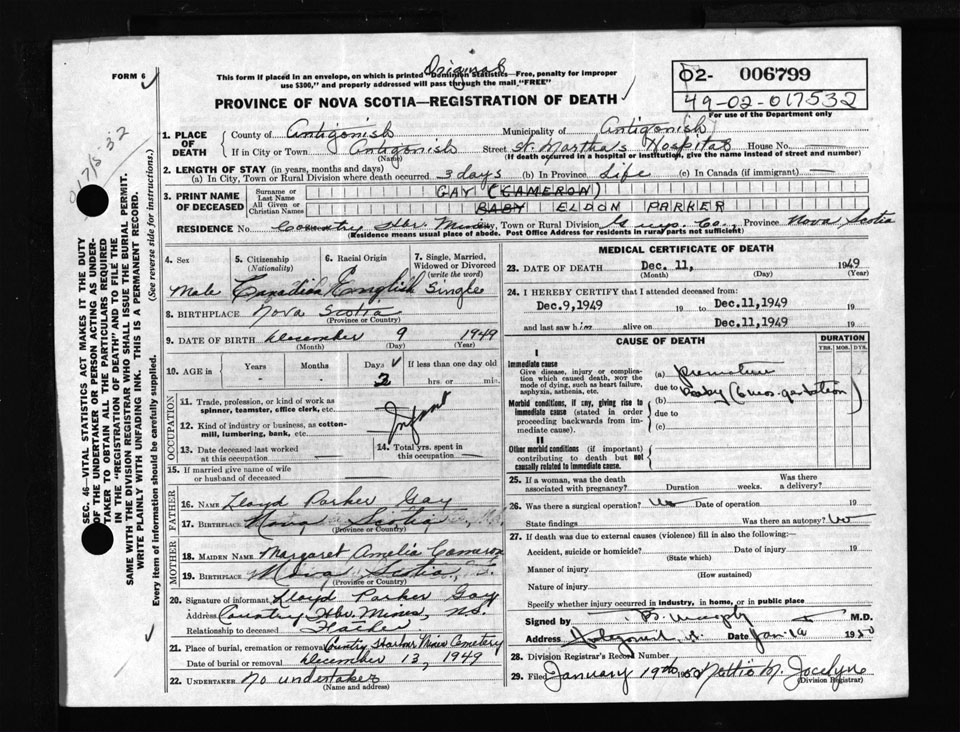 Original
FORM 6
This form if placed in an envelope, on which is printed "Dominion Statistics—Free, penalty for improper
use $300," and properly addressed will pass through the mail "FREE"
02- 006799
49-02-017532
For use of the Department only
PROVINCE OF NOVA SCOTIA—REGISTRATION OF DEATH
017532
SEC. 46—VITAL STATISTICS ACT MAKES IT THE DUTY
OF THE UNDERTAKER OR PERSON ACTING AS UNDER-
TAKER TO OBTAIN ALL THE PARTICULARS REQUIRED
IN THE "REGISTRATION OF DEATH" AND TO FILE THE
SAME WITH THE DIVISION REGISTRAR WHO SHALL ISSUE THE BURIAL PERMIT.
WRITE PLAINLY WITH UNFADING INK. THIS IS A PERMANENT RECORD.
Every item of information should be carefully supplied. (See reverse side for instructions.)
1. PLACE OF DEATH County of Antigonish Municipality of Antigonish
If in City or Town Antigonish Street St. Martha's Hospital House No.
(Name) (If death occurred in a hospital or institution, give the name instead of street and number)
2. LENGTH OF STAY (in years, months and days)
(a) In City, Town or Rural Division where death occurred 3 days (b) In Province Life (c) In Canada (if immigrant) —
3. PRINT NAME OF DECEASED Surname or Last Name GAY (CAMERON)
All Given or Christian Names BABY ELDON PARKER
RESIDENCE No. Country Hbr. Mines, Town or Rural Division Guys. Co., Province Nova Scotia
(Residence means usual place of abode. Post Office Address for residents in rural parts not sufficient)
4. Sex 5. Citizenship (Nationality) 6. Racial Origin 7. Single, Married, Widowed or Divorced (write the word)
Male Canadian English Single
8. BIRTHPLACE Nova Scotia
(Province or Country)
9. DATE OF BIRTH December 9 1949
(Month) (Day) (Year)
10. AGE in Years Months Days If less than one day old
- 2 hrs. or min.
OCCUPATION
11. Trade, profession, or kind of work as
spinner, teamster, office clerk, etc.
Infant
12. Kind of industry or business, as cotton-
mill, lumbering, bank, etc.
13. Date deceased last worked
at this occupation
14. Total yrs. spent in
this occupation
15. If married give name of wife
or husband of deceased
FATHER
16. NAME Lloyd Parker Gay
17. BIRTHPLACE Nova Scotia
(Province or Country)
MOTHER
18. MAIDEN NAME Margaret Amelia Cameron
19. BIRTHPLACE Nova Scotia
(Province or Country)
20. Signature of informant Lloyd Parker Gay
Address Country Hbr. Mines, N.S.
Relationship to deceased Father
21. Place of burial, cremation or removal Country Harbour Mines Cemetery
Date of burial or removal December 13, 1949
22. UNDERTAKER No undertaker
(Name and address)
MEDICAL CERTIFICATE OF DEATH
23. DATE OF DEATH Dec. 11, 1949
(Month) (Day) (Year)
24. I HEREBY CERTIFY that I attended deceased from:
Dec.9,1949 19 to Dec.11,1949 19
and last saw him alive on Dec.11,1949 19
CAUSE OF DEATH
DURATION
YRS. MOS. DYS.
I
Immediate cause
Give disease, injury or complica-
tion which caused death, NOT the
mode of dying, such as heart failure,
asphyxia, asthenia, etc.
(a) Premature
due to baby (6 mos. gestation)
Morbid conditions, if any, giving rise to
immediate cause (stated in order
proceeding backwards from im-
mediate cause).
(b)
due to
(c)
II
Other morbid conditions (if important)
contributing to death but not
causally related to immediate cause.
25. If a woman, was the death
associated with pregnancy? Duration weeks. Was there
a delivery?
26. Was there a surgical operation? No Date of operation 19
State findings Was there an autopsy? No
27. If death was due to external causes (violence) fill in also the following:—
Accident, suicide or homicide? Date of injury 19
(State which)
Manner of injury
(How sustained)
Nature of injury
Specify whether injury occurred in industry, in home, or in public place
Signed by Murphy M.D.
Address Date Jan. 1950
28. Division Registrar's Record Number
29. Filed January 19th 1950 Nettie M. Jocelyn
(Division Registrar)